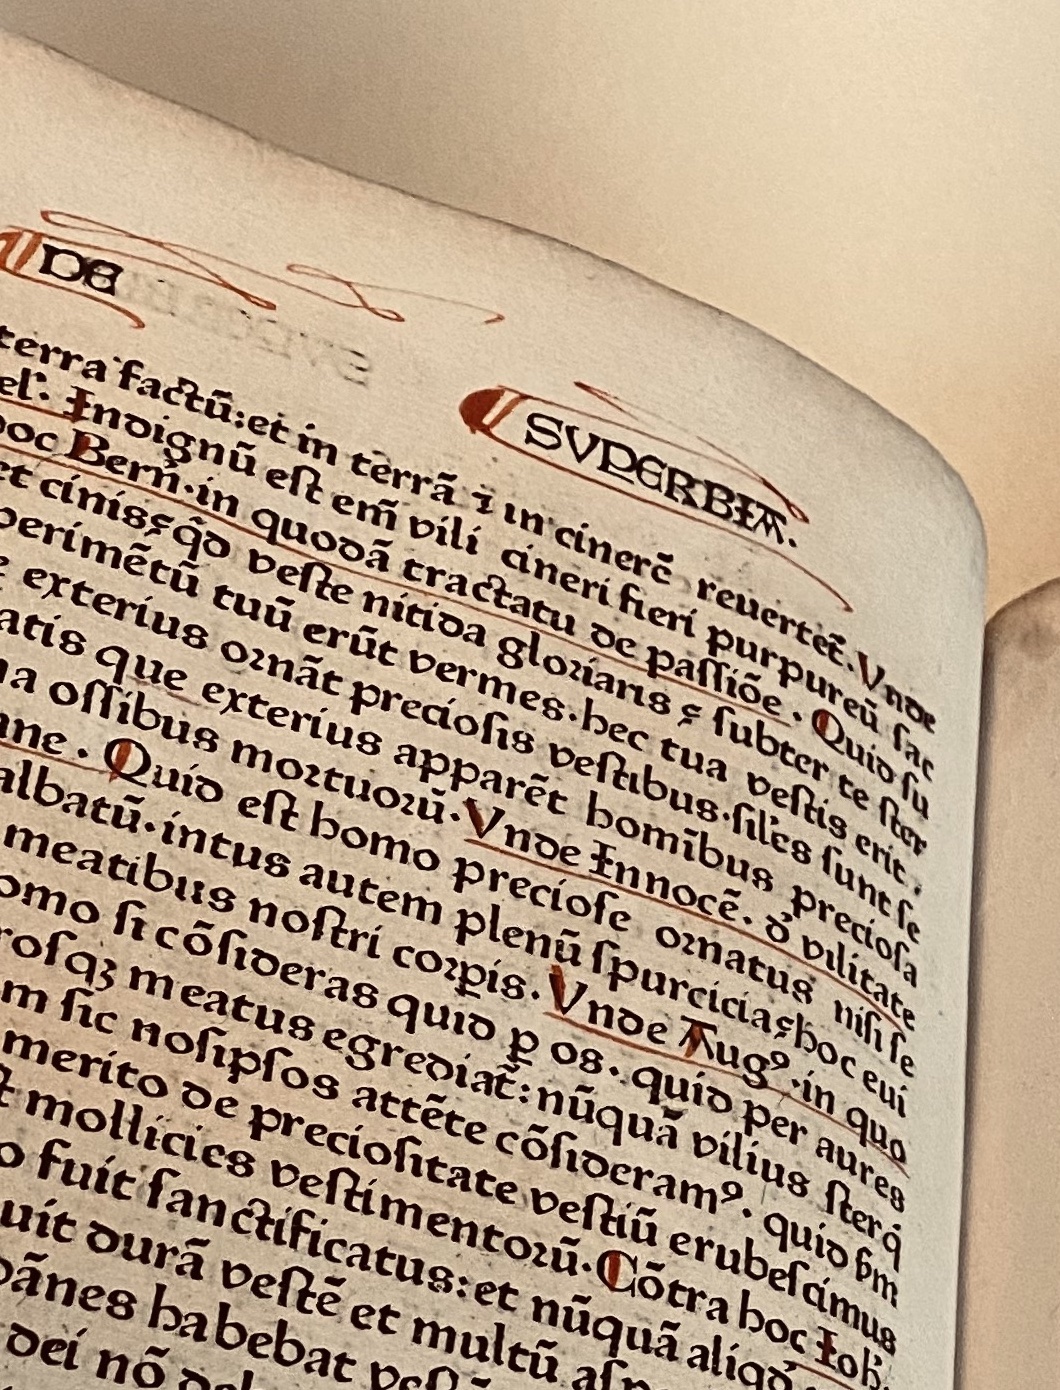 DE SVPERBIA.
terra factū:et in terrā ⁊ in cinerē reuertet̄.Vnde
el'. Indignū eſt em̄ vili cineri fieri purpureū ſac
hoc Bern̄.in quodā tractatu de paſſiōe. Quid ſu
et cinis? q̄d veſte nitida gloriaris? ſubter te ſter
perimētū tuū erūt vermes.hec tua veſtis erit.
exterius ornāt precioſis veſtibus.ſil'es ſunt ſe
atis que exterius apparēt homībus precioſa
oſſibus mortuorū.Vnde Innocē. ď vilitate
ane. Quid eſt homo precioſe ornatus niſi ſe
albatū.intus autem plenū ſpurcicia? hoc eui
meatibus noſtri corꝑis.Vnde Augꝰ.in quo
omo ſi cōſideras quid ꝑ os. quid per aures
roſqꝫ meatus egrediat̄: nūquā vilius ſterq̄
m ſic noſipſos attēte cōſideramꝰ. quid ẜm
merito de precioſitate veſtiū erubeſcimus
t mollicies veſtimentorū.Cōtra hoc Iob.
o fuit ſanctificatus:et nūquā aliqď
uit durā veſtē et multū
ānes habebat
dei nō